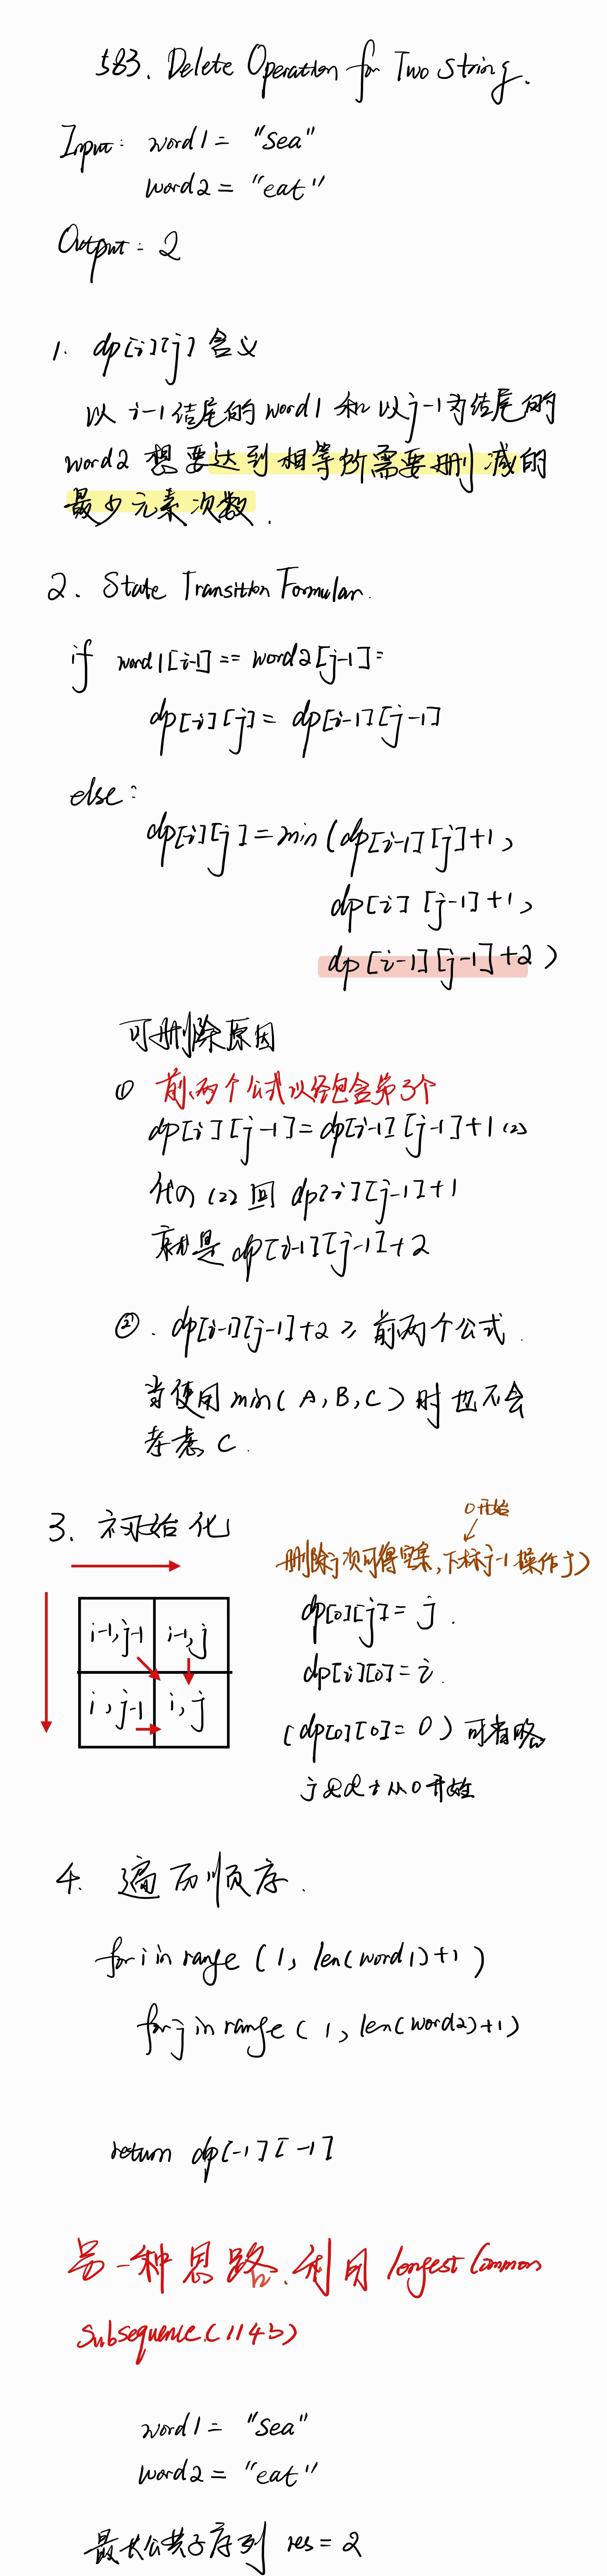 583. Delete Operation for Two String.
Input: word1 = "Sea"
word2 = "eat"
Output: 2
1. dp[i][j] 含义
以 i-1 结尾的 word1 和 以 j-1 为结尾的
word2 想要达到相等所需要删减的
最少元素次数.
2. State Transition Formular.
if word1[i-1] == word2[j-1]:
dp[i][j] = dp[i-1][j-1]
else:
dp[i][j] = min(dp[i-1][j]+1,
dp[i][j-1]+1,
dp[i-1][j-1]+2)
可删除原因
① 前两个公式以经包含第3个
dp[i][j-1] = dp[i-1][j-1]+1 (2)
代入 (2) 回 dp[i][j-1]+1
就是 dp[i-1][j-1]+2
②. dp[i-1][j-1]+2 ≥ 前两个公式.
当使用 min(A, B, C) 时也不会
考虑 C.
3. 初始化
0开始
删除j次可得空集, 下标j-1 操作j)
i-1, j-1 i-1, j
i, j-1 i, j
dp[0][j] = j.
dp[i][0] = i.
(dp[0][0] = 0) 可省略
从0开始
4. 遍历顺序.
for i in range (1, len(word1)+1)
for j in range (1, len(word2)+1)
return dp[-1][-1]
另一种思路, 利用 longest Common
Subsequence.(1143)
word1 = "Sea"
word2 = "eat"
最长公共子序列 res = 2